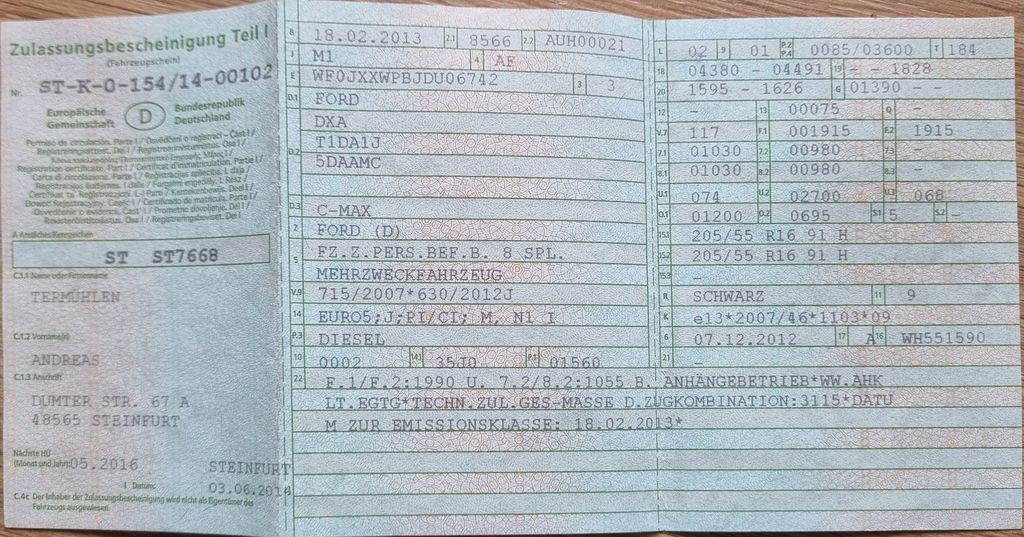 Zulassungsbescheinigung Teil I
(Fahrzeugschein)
Nr. ST-K-0-154/14-00102
Europäische Gemeinschaft D Bundesrepublik Deutschland
Permiso de circulación. Parte I / Osvědčení o registraci - Část I /
Registreringsattest. Del I / Registreerimistunnistus. Osa I /
Registration certificate. Part I / Certificat d'immatriculation. Partie I /
Carta di circolazione. Parte I / Reģistrācijas apliecība. I. daļa /
A Amtliches Kennzeichen
ST ST7668
C.1.1 Name oder Firmenname
TERMÜHLEN
C.1.2 Vorname(n)
ANDREAS
C.1.3 Anschrift
DUMTER STR. 67 A
48565 STEINFURT
Nächste HU
(Monat und Jahr) 05.2016 STEINFURT
I Datum: 03.06.2014
C.4c Der Inhaber der Zulassungsbescheinigung wird nicht als Eigentümer des
Fahrzeugs ausgewiesen.
B 18.02.2013 2.1 8566 2.2 AUH00021
J M1 4 AF
E WF0JXXWPBJDU06742 3 3
D.1 FORD
DXA
D.2 T1DA1J
5DAAMC
D.3 C-MAX
2 FORD (D)
5 FZ.Z.PERS.BEF.B. 8 SPL.
MEHRZWECKFAHRZEUG
V.9 715/2007*630/2012J
14 EURO5;J;PI/CI; M, N1 I
P.3 DIESEL
10 0002 14.1 35J0 P.1 01560
22 F.1/F.2:1990 U. 7.2/8.2:1055 B. ANHÄNGEBETRIEB*WW.AHK
LT.EGTG*TECHN.ZUL.GES-MASSE D.ZUGKOMBINATION:3115*DATU
M ZUR EMISSIONSKLASSE: 18.02.2013*
L 02 9 01 P.2 P.4 0085/03600 T 184
18 04380 - 04491 19 - - 1828
20 1595 - 1626 G 01390 - -
12 - 13 00075 Q -
V.7 117 F.1 001915 F.2 1915
7.1 01030 7.2 00980 7.3 -
8.1 01030 8.2 00980 8.3 -
U.1 074 U.2 02700 U.3 068
O.1 01200 O.2 0695 S.1 5 S.2 -
15.1 205/55 R16 91 H
15.2 205/55 R16 91 H
15.3 -
R SCHWARZ 11 9
K e13*2007/46*1103*09
6 07.12.2012 17 A 16 WH551590
21 -